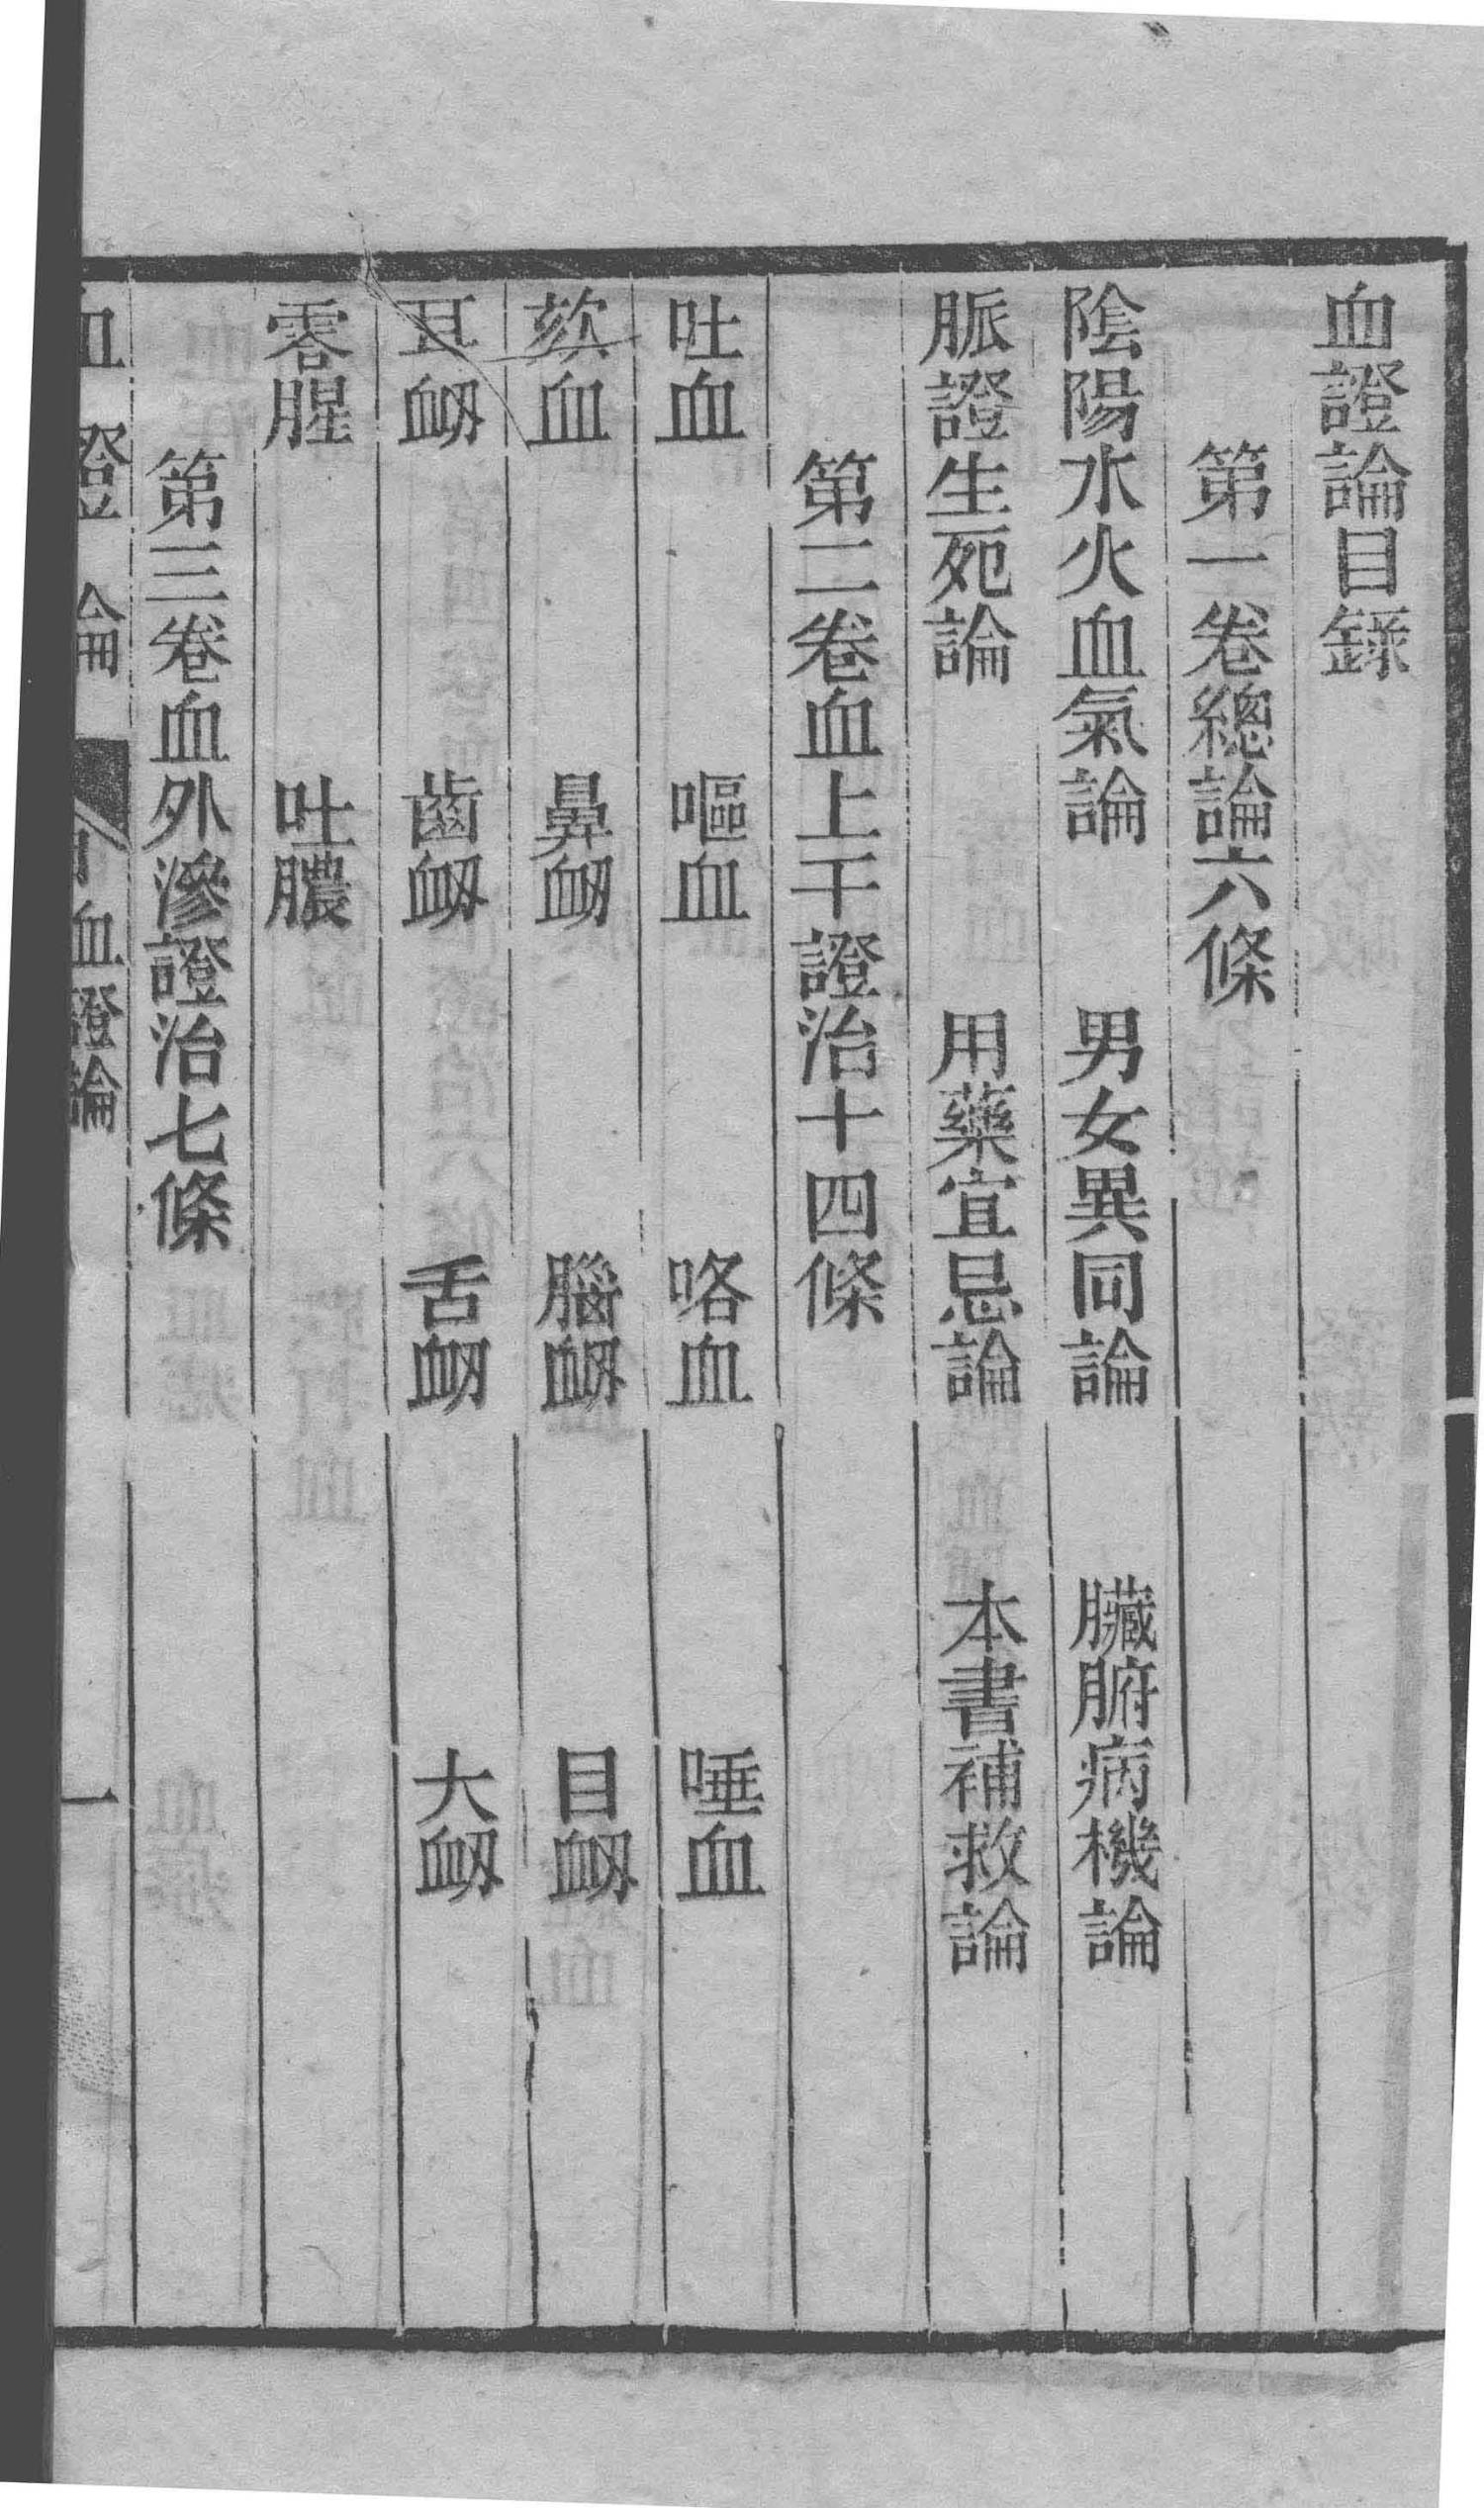 血證論目錄
第一卷總論六條
陰陽水火血氣論　男女異同論　臟腑病機論
脈證生死論　用藥宜忌論　本書補救論
第二卷血上干證治十四條
吐血　嘔血　咯血　唾血
欬血　鼻衂　腦衂　目衂
耳衂　齒衂　舌衂　大衂
零腥　吐膿
第三卷血外滲證治七條
血證論　血證論　一